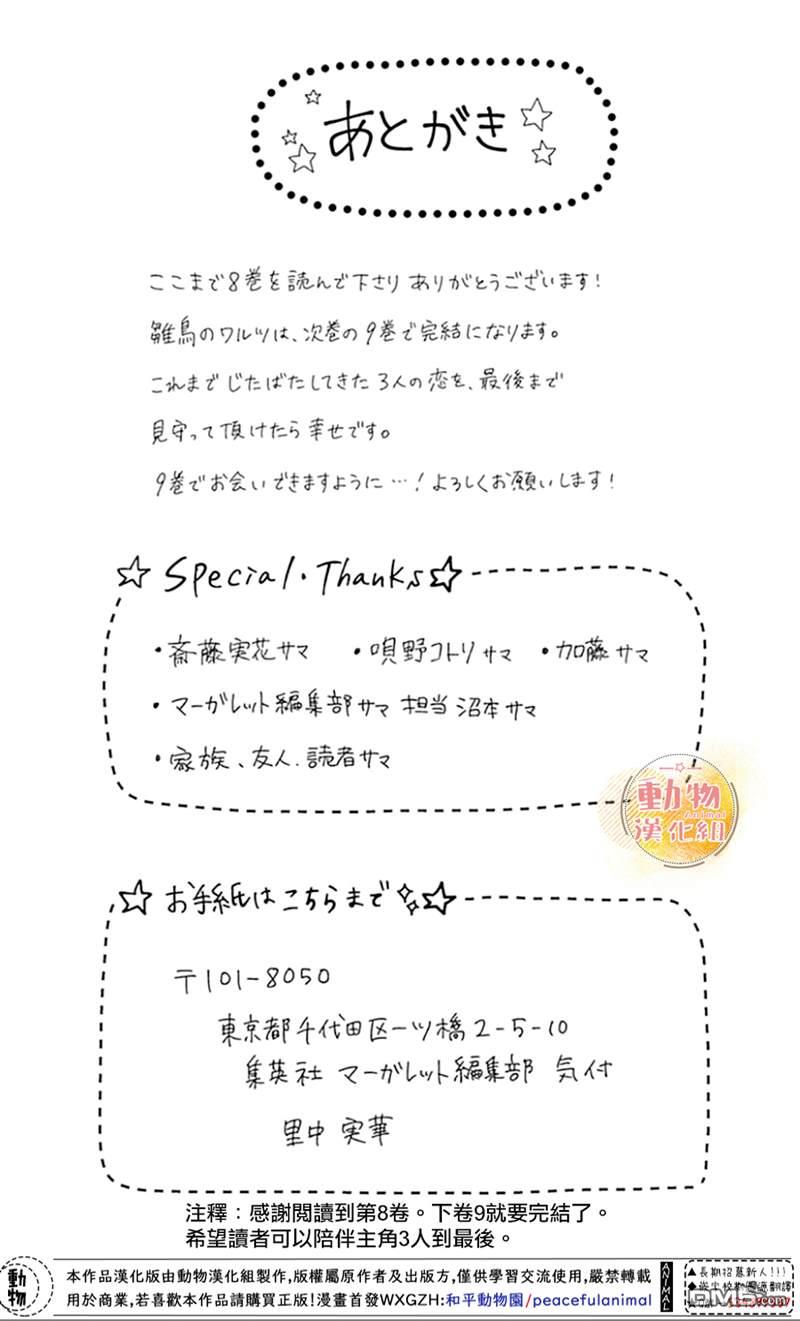 あとがき
ここまで8巻を読んで下さり ありがとうございます！
雛鳥のワルツは、次巻の9巻で完結になります。
これまで じたばたしてきた 3人の恋を、最後まで
見守って頂けたら幸せです。
9巻でお会いできますように…！よろしくお願いします！
Special・Thanks
・斎藤実花サマ ・唄野コトリサマ ・加藤サマ
・マーガレット編集部サマ 担当 沼本サマ
・家族、友人、読者サマ
動物
Animal
漢化組
お手紙はこちらまで
〒101-8050
東京都千代田区一ツ橋2-5-10
集英社 マーガレット編集部 気付
里中 実華
注釋：感謝閲讀到第8卷。下卷9就要完結了。
希望讀者可以陪伴主角3人到最後。
動物
本作品漢化版由動物漢化組製作,版權屬原作者及出版方,僅供學習交流使用,嚴禁轉載
用於商業,若喜歡本作品請購買正版!漫畫首發WXGZH:和平動物園/peacefulanimal
ANIMAL
▲長期招募新人!!!